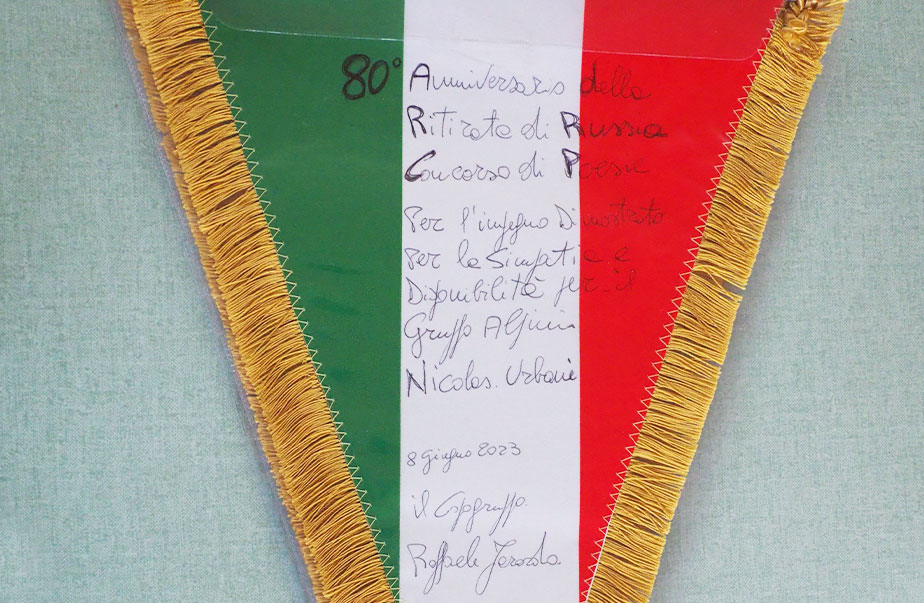 80° Anniversario della
Ritirata di Russia
Concorso di Poesie
Per l'ingegno Dimostrato
Per la Simpatia e
Disponibilità per il
Gruppo Alpini
Nicolas Urbani
8 giugno 2023
il Capogruppo
Raffaele